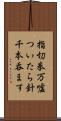 指切拳万嘘
ついたら針
千本呑ます